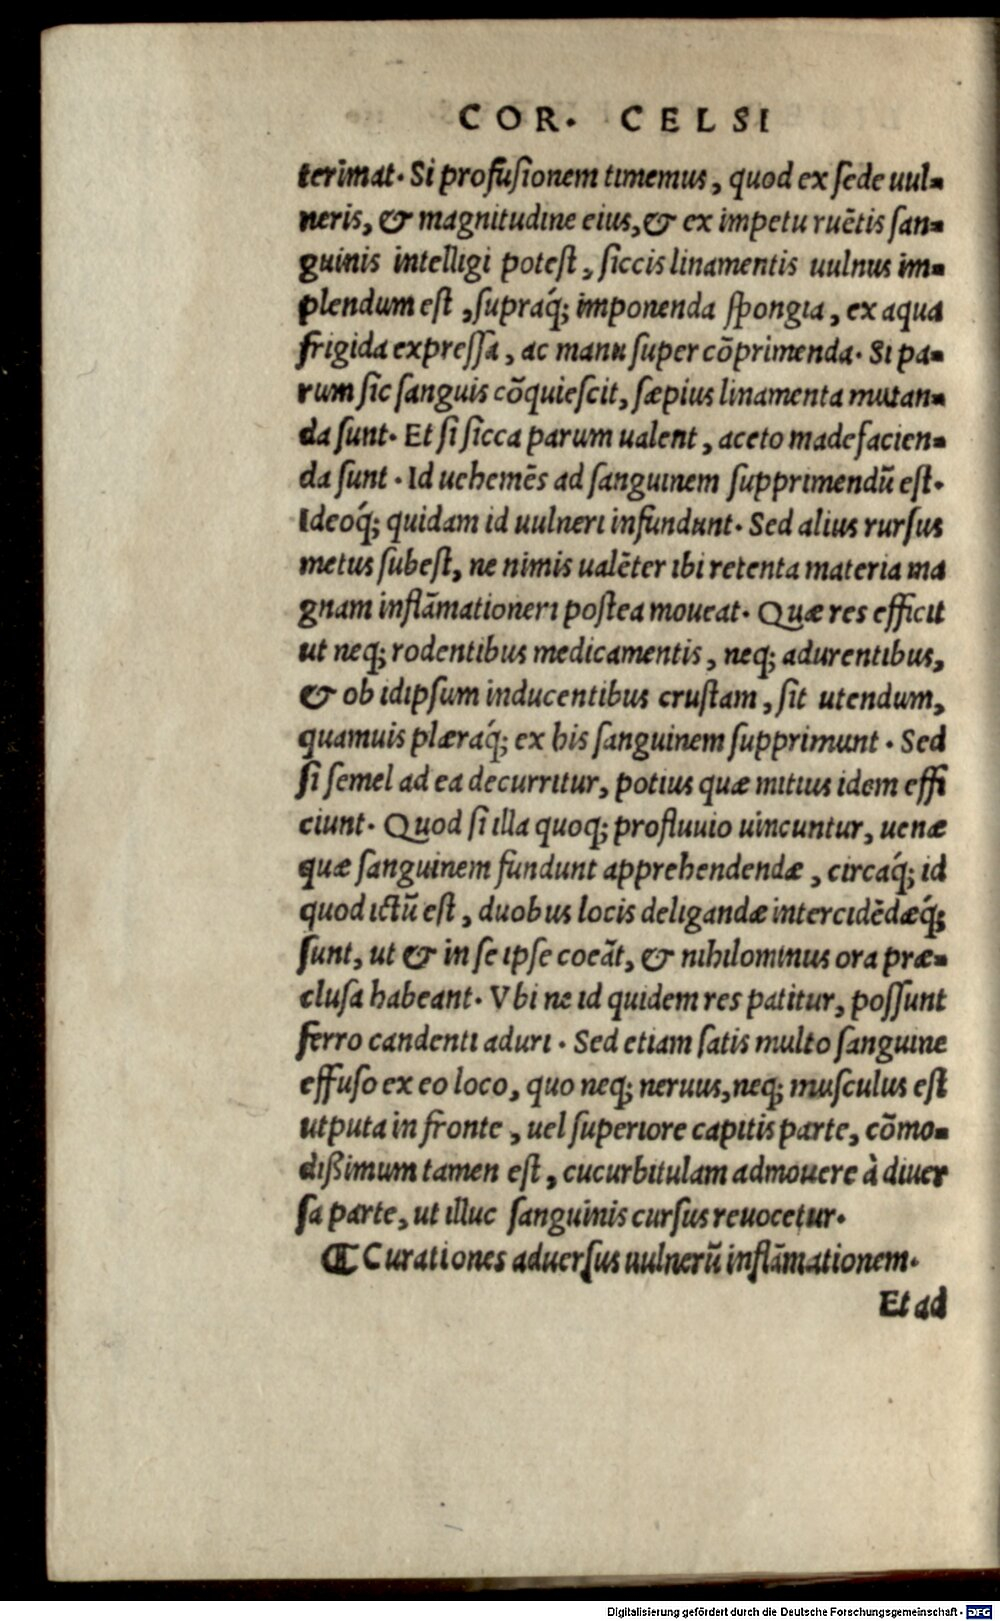 COR. CELSI
terimat. Si profusionem timemus, quod ex sede uul-
neris, & magnitudine eius, & ex impetu ruētis san-
guinis intelligi potest, siccis linamentis uulnus im-
plendum est, supraq́; imponenda spongia, ex aqua
frigida expressa, ac manu super cōprimenda. Si pa-
rum sic sanguis cōquiescit, sæpius linamenta mutan-
da sunt. Et si sicca parum ualent, aceto madefacien-
da sunt. Id uehemēs ad sanguinem supprimendū est.
Ideoq́; quidam id uulneri infundunt. Sed alius rursus
metus subest, ne nimis ualēter ibi retenta materia ma
gnam inflāmationem postea moueat. Quæ res efficit
ut neq; rodentibus medicamentis, neq; adurentibus,
& ob idipsum inducentibus crustam, sit utendum,
quamuis plæraq́; ex his sanguinem supprimunt. Sed
si semel ad ea decurritur, potius quæ mitius idem effi
ciunt. Quod si illa quoq; profluuio uincuntur, uenæ
quæ sanguinem fundunt apprehendendæ, circaq́; id
quod ictū est, duobus locis deligandæ intercidēdæq́;
sunt, ut & in se ipse coeāt, & nihilominus ora præ-
clusa habeant. Vbi ne id quidem res patitur, possunt
ferro candenti aduri. Sed etiam satis multo sanguine
effuso ex eo loco, quo neq; neruus, neq; musculus est
utputa in fronte, uel superiore capitis parte, cōmo-
dißimum tamen est, cucurbitulam admouere à diuer
sa parte, ut illuc sanguinis cursus reuocetur.
¶ Curationes aduersus uulnerū inflāmationem.
Et ad
Digitalisierung gefördert durch die Deutsche Forschungsgemeinschaft - DFG